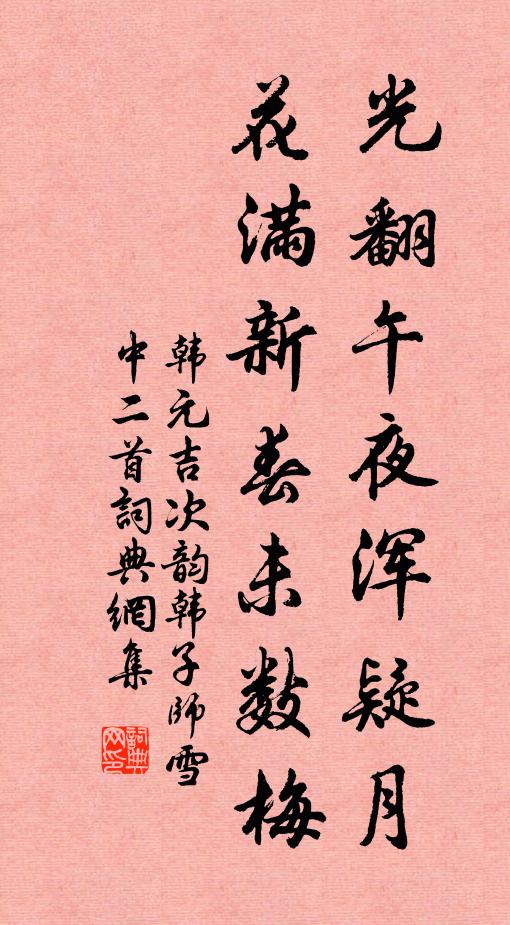 光翻午夜浑疑月
花满新春未数梅
韩元吉次韵韩子师雪
中二首詞典網集
詞典网印